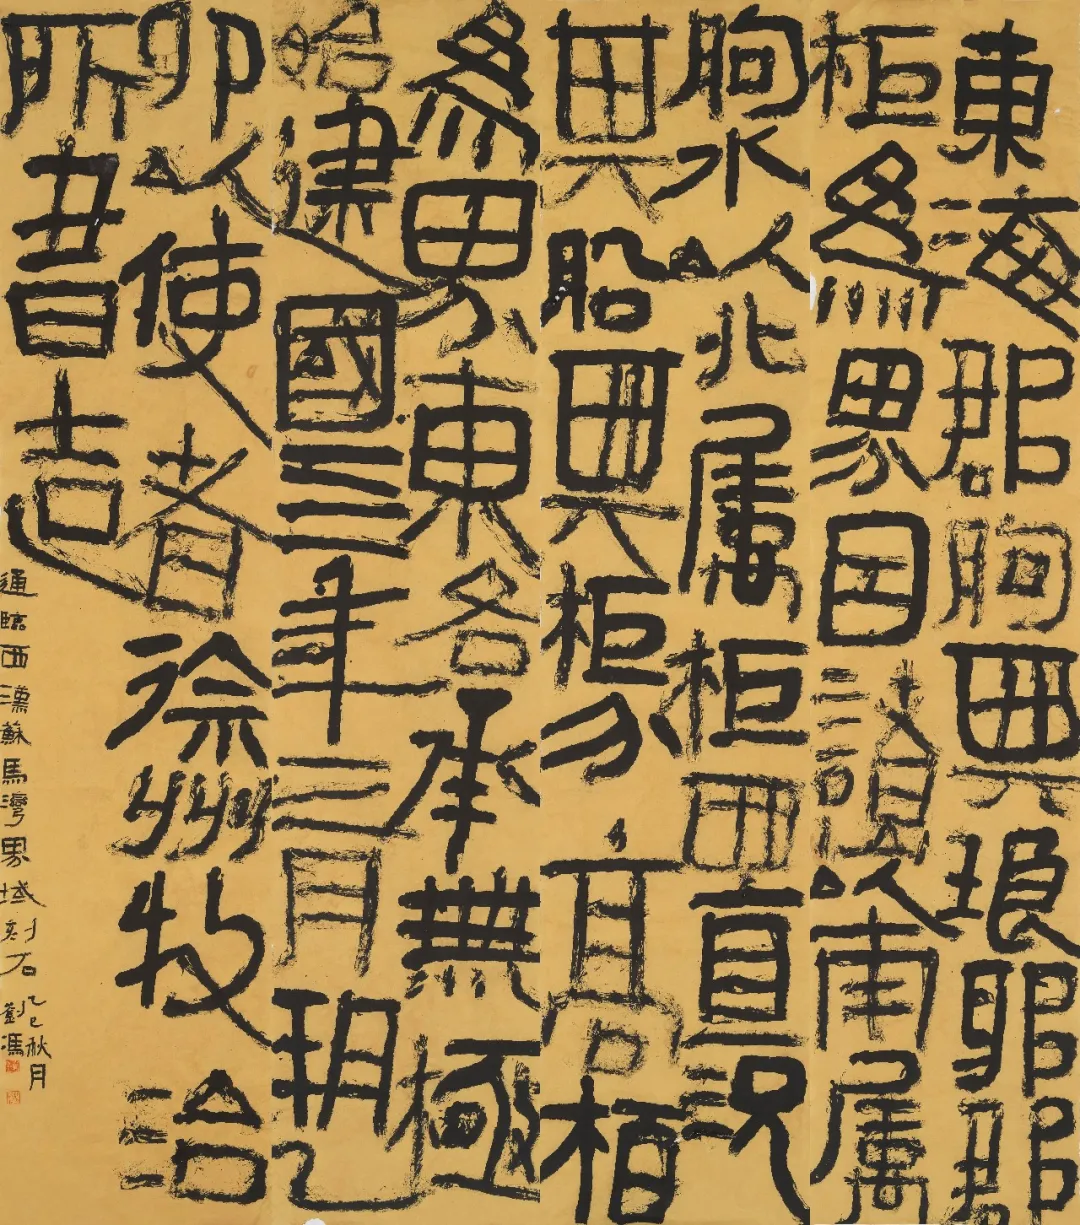 東海郡朐與琅耶郡
柜為界因以南屬
朐水以北屬柜西直況
其朐與柜分高栢
為界東各承無極
始建國亖年亖月朔乙
卯以使者徐州牧治
所書造
通臨西漢蘇馬灣界域刻石
乙巳秋月
劉馮